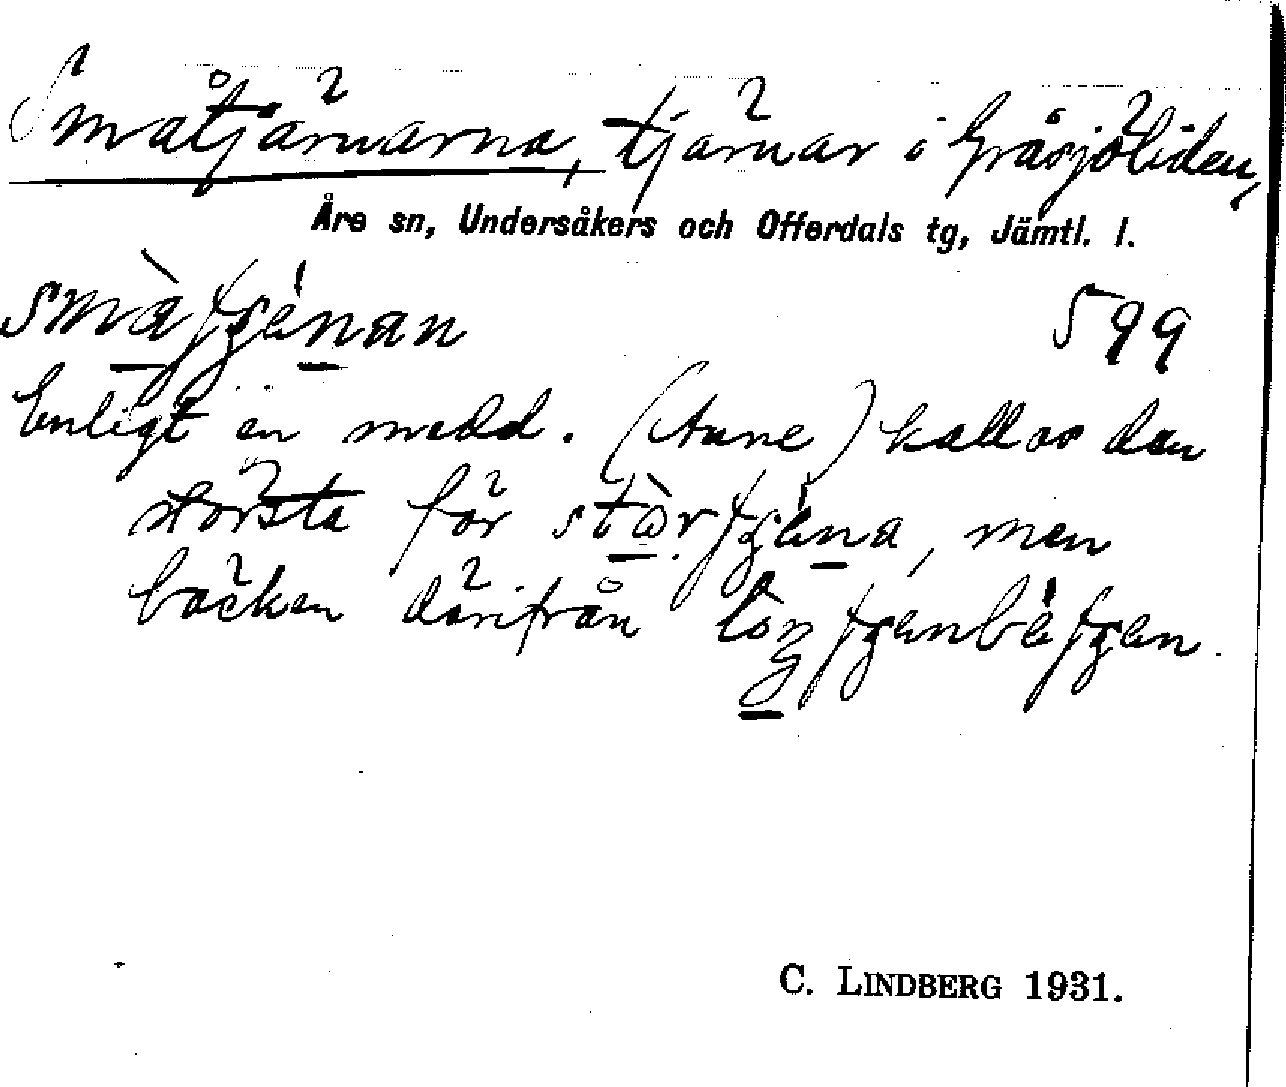 Småtjärnarna, tjärnar i Gråsjöliden,
Åre sn, Undersåkers och Offerdals tg, Jämtl. l.
599
Enligt en medd. (Aune) kallas den
största för
men
bäcken därifrån
C. LINDBERG 1931.